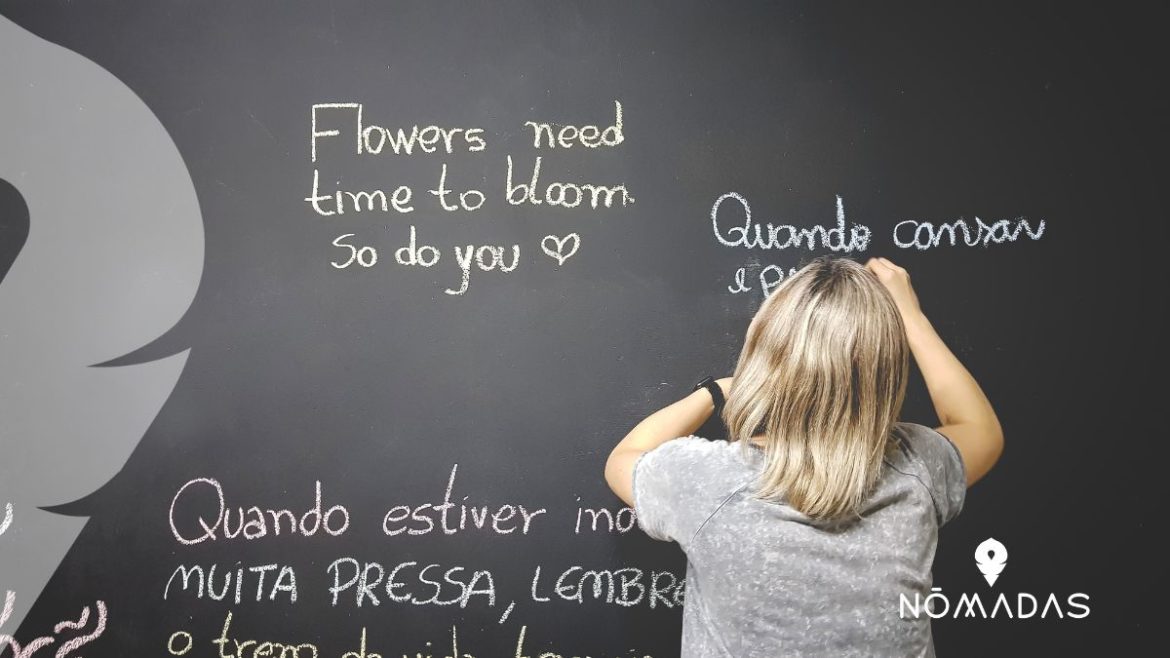 Flowers need
time to bloom.
So do you ♡
Quando cansar
e
Quando estiver
MUITA PRESSA, LEMBRE
o trem da vida
NŌMADAS